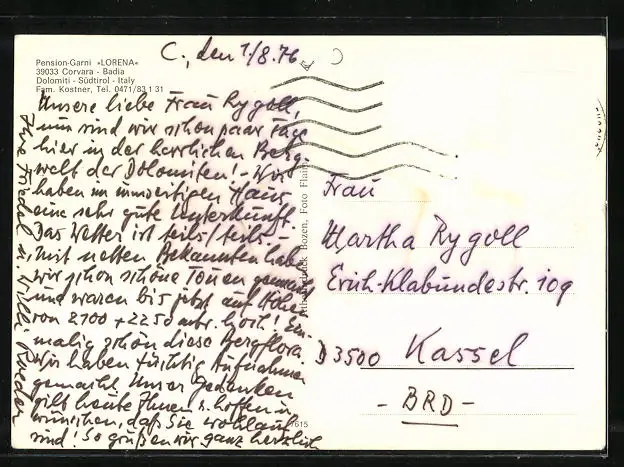 Pension-Garni «LORENA»
39033 Corvara - Badia
Dolomiti - Südtirol - Italy
Fam. Kostner, Tel. 0471/83 1 31
C., den 1/8.76
Unsere liebe Frau Rygoll,
nun sind wir schon paar Tage
hier in der herrlichen Berg-
welt der Dolomiten! - Wir
haben im umseitigen Haus
eine sehr gute Unterkunft.
Das Wetter ist teils/teils -
mit netten Bekannten haben
wir schon schöne Touren gemacht
und waren bis jetzt auf Höhe
von 2100 + 2250 mtr. hoch! Ein-
malig schön diese Bergflora.
Wir haben tüchtig Aufnahmen
gemacht. Unser Gedenken
gilt heute Ihnen u. hoffen u.
wünschen, daß Sie wohlauf
sind! So grüßen wir ganz herzlich
Ihre Friedel u. Willi
Bozen, Foto
615
Frau
Martha Rygoll
Erich-Klabundestr. 109
D 3500 Kassel
- BRD -